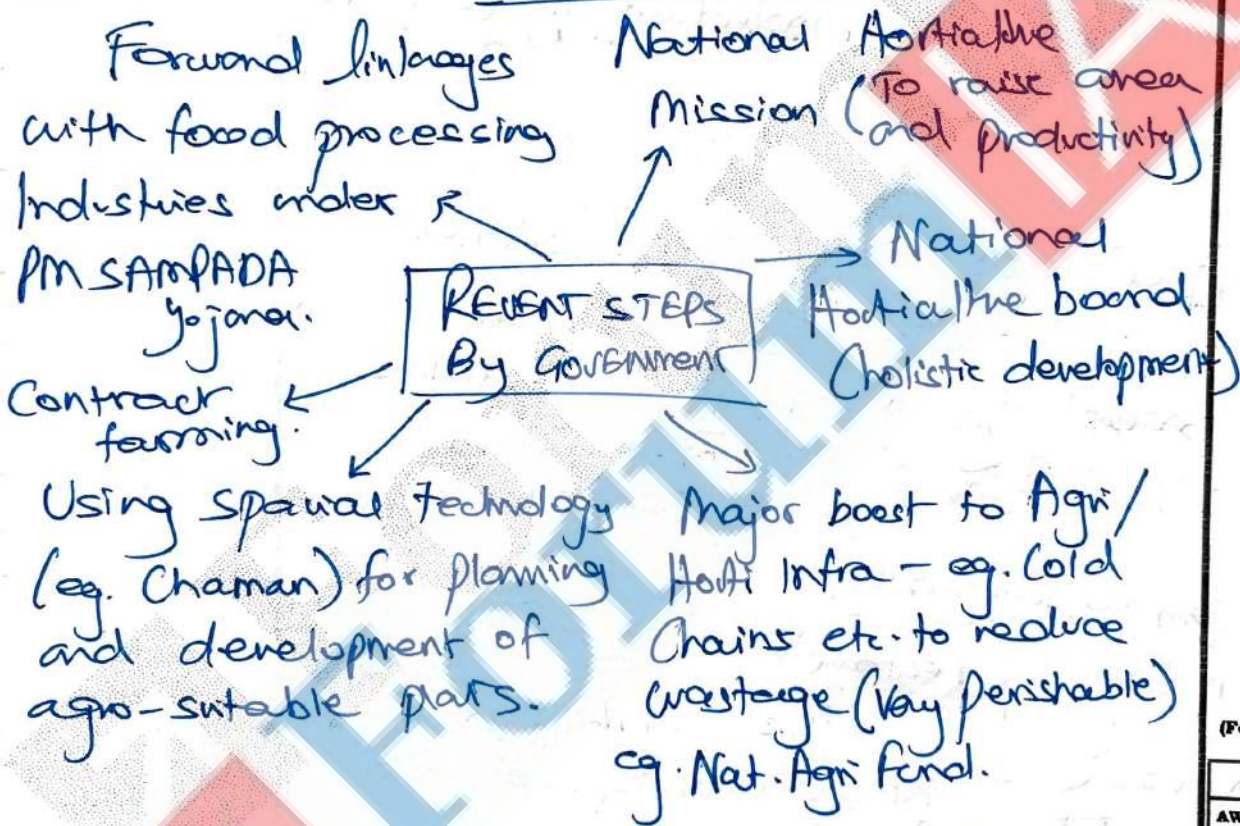 Forward linkages
with food processing
Industries under
PM SAMPADA
Yojana.
National Horticulture
Mission (To raise area
and productivity)
National
Horticulture board
(holistic development)
RECENT STEPS
By Government
Contract
farming.
Using spatial technology
(eg. Chaman) for planning
and development of
agro-suitable plans.
Major boost to Agri/
Horti Infra - eg. Cold
Chains etc. to reduce
wastage (Very Perishable)
eg. Nat. Agri fund.
Forum